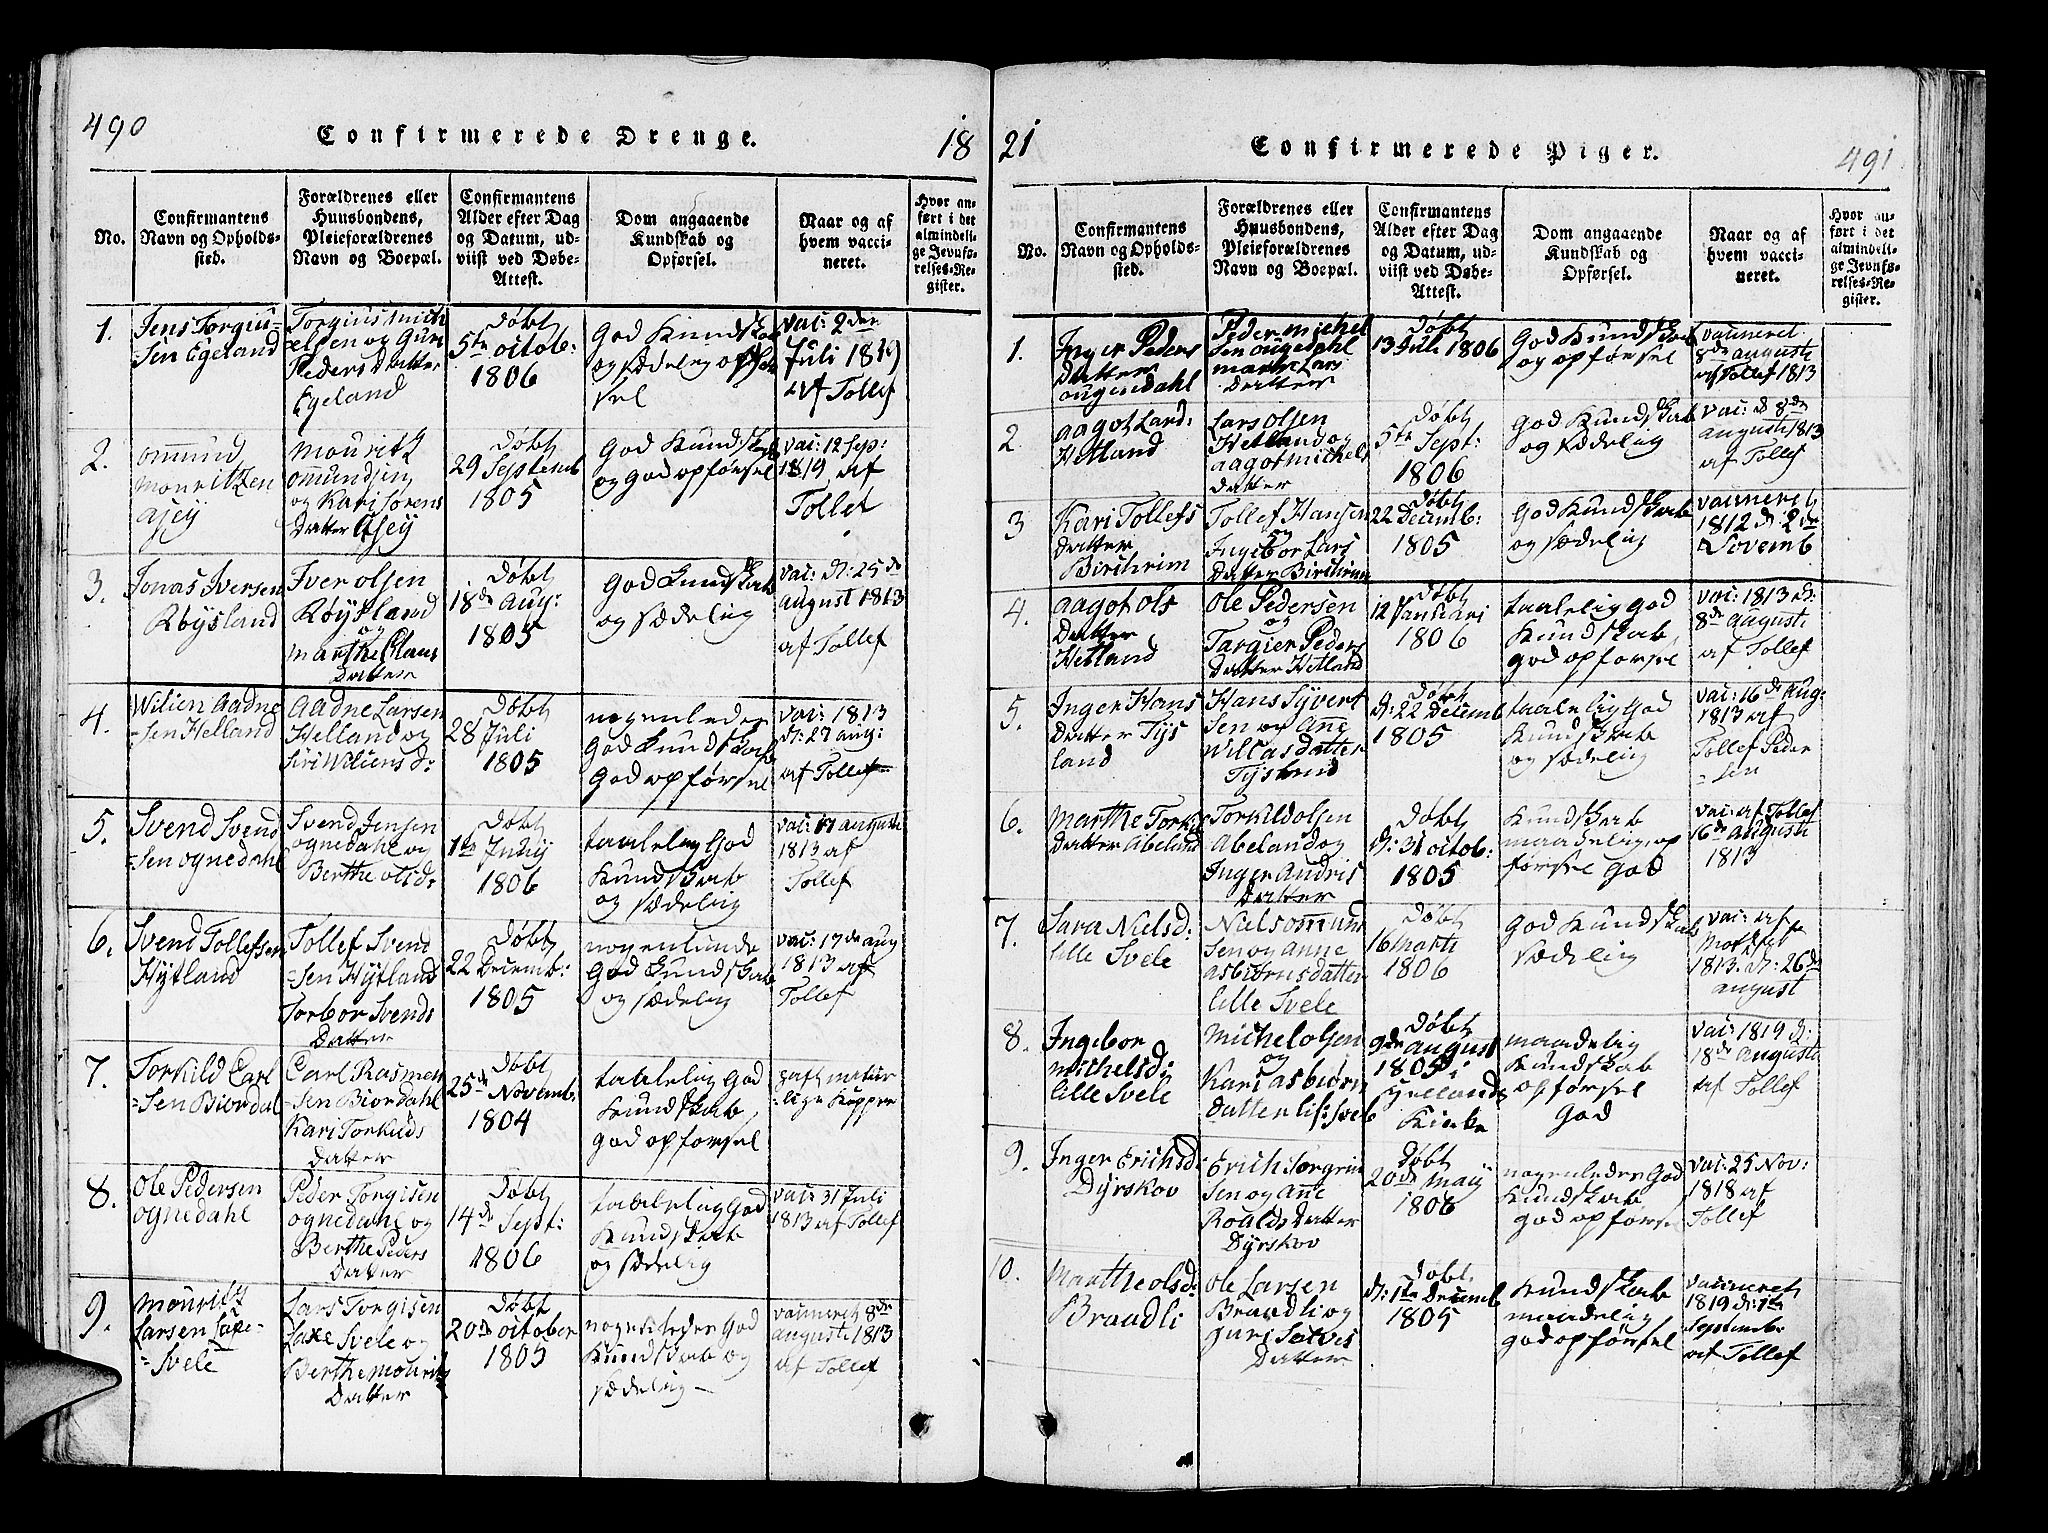 490
Confirmerede Drenge.
18
No.
Confirmantens
Navn og Opholds-
sted.
Forældrenes eller
Huusbondens,
Pleieforældrenes
Navn og Boepæl.
Confirmantens
Alder efter Dag
og Datum, ud-
viist ved Døbe-
Attest.
Dom angaaende
Kundskab og
Opførsel.
Naar og af
hvem vacci-
neret.
Hvor an-
ført i det
almindeli-
ge Jevnfø-
relses-Re-
gister.
1.
Jens Torgiu-
=sen Egeland
Torgius Mich
elsen og Guri
Peders Datter
Egeland
Døbt
5te octob:
1806
God Kundskab
og sædelig opfør
sel
vac: 2den
Juli 1819
af Tollef
2.
ommund
mouritzen
Asey
mouritz
ommundsen
og Kari Sørens
Datter Asey
Døbt
29 Septemb
1805
God Kundskab
og god opførsel
vac: 12 Sep:
1819 af
Tollef
3.
Jonas Iversen
Røysland
Iver olsen
Røysland
og
marthe Claus
Datter
Døbt
18de Aug:
1805
God Kundskab
og sædelig
vac: d: 25de
august 1813
af Tollef
4.
Wilien Aadne
=sen Helland
Aadne Larsen
Helland og
Siri Wiliens d:
Døbt
28 Juli
1805
nogenledes
God Kundskab
God opførsel
vac: 1813
d: 27 aug:
af Tollef
5.
Svend Svend
=sen ognedahl
Svend Jensen
ognedahl og
Berthe olsd:
Døbt
1te Juny
1806
taalelig God
Kundskab
og sædelig
vac: 17 augusti
1813 af
Tollef
6.
Svend Tollefsen
Hytland
Tollef Svend
=sen Hytland
Torbor Svends
Datter
Døbt
22 Decemb:
1805
nogenlunde
God Kundskab
og sædelig
vac: 17de aug
1813 af
Tollef
7.
Torkild Carl
=sen Biordal
Carl Rasmen
=sen Biordahl
Kari Torkilds
Datter
Døbt
25de Novemb:
1804
taalelig God
Kundskab
god opførsel
haft natur
lige Kopper
8.
Ole Pedersen
ognedahl
Peder Torgisen
ognedahl og
Berthe Peders
Datter
Døbt
14de Sept:
1806
taalelig God
Kundskab
og sædelig
vac: 31 Juli
1813 af Tollef
9.
mouritz
Larsen Laxe-
=Svele
Lars Torgisen
Laxe Svele og
Berthe mourits
Datter
Døbt
20de october
1805
nogenledes God
Kundskab og
sædelig
vaccineret 8de
augusti 1813
af Tollef
21
Confirmerede Piger.
491
No.
Confirmantens
Navn og Opholds-
sted.
Forældrenes eller
Huusbondens,
Pleieforældrenes
Navn og Boepæl.
Confirmantens
Alder efter Dag
og Datum, ud-
viist ved Døbe-
Attest.
Dom angaaende
Kundskab og
Opførsel.
Naar og af
hvem vacci-
neret.
Hvor an-
ført i det
almindeli-
ge Jevnfø-
relses-Re-
gister.
1.
Inger Peders
Datter
ougendahl
Peder michel
sen ougedahl
marthe Lars
Datter
Døbt
13 Juli 1806
God Kundskab
og opførsel
vaccineret
8de augusti
af Tollef 1813
2
aagot Lars d:
Hetland
Lars Olsen
Hetland og
aagot michels
datter
Døbt
5te Sept:
1806
God Kundskab
og sædelig
vac: d 8de
augusti 1813
af Tollef
3
Kari Tollefs
Datter
Birchrim
Tollef Hansen
og
Ingebor Lars
Datter Birchrim
Døbt
22 Decemb:
1805
God Kundskab
og sædelig
vaccineret
1812 d: 2de
Novemb
4.
aagot ols
Datter
Hetland
Ole Pedersen
og
Targier Peders
Datter Hetland
Døbt
12 Januari
1806
taalelig God
Kundskab,
god opførsel
vac: 1813 d:
8de augusti
af Tollef
5.
Inger Hans
Datter Tys
land
Hans Syvert
sen og Anne
Willas datter
Tysland
Døbt
d: 22 Decemb
1805
taalelig God
Kundskab
og sædelig
vac: 16de Aug:
1813 af
Tollef Peder
=sen
6.
Marthe Torkil
Datter Abeland
Torkild olsen
Abeland og
Inger Andris
Datter
Døbt
d: 31 octob:
1805
Kundskab
maadelig, op
førsel God
vac: af Tollef
16de Augusti
1813
7.
Sara Nielsd:
lille Svele
Niels ommund
sen og anne
asbiørns datter
lille Svele
Døbt
16 marti
1806
God Kundskab
sædelig
vac: af
1813. d: 26de
august
8.
Ingebor
michelsd:
lille Svele
Michel olsen
og
Kari asbiørn
Datter lil: Svele
Døbt
9de august
1805 i
Hellands
Kirke
maadelig
Kundskab
opførsel
God
vac: 1819 d:
18de Augusti
af Tollef
9.
Inger Erichsd:
Dyrskov
Erich Torgrim
sen og Anne
Roalds Datter
Dyrskov
Døbt
20de maij
1806
nogenledes God
Kundskab
god opførsel
vac: 25 Nov:
1818 af
Tollef
10.
Marthe olsd:
Braadli
ole Larsen
Braadli og
Guri Salves
Datter
Døbt
d: 1te Decemb
1805
Kundskab
maadelig
god opførsel
vaccineret
1819 d: 1te
Septemb:
af Tollef